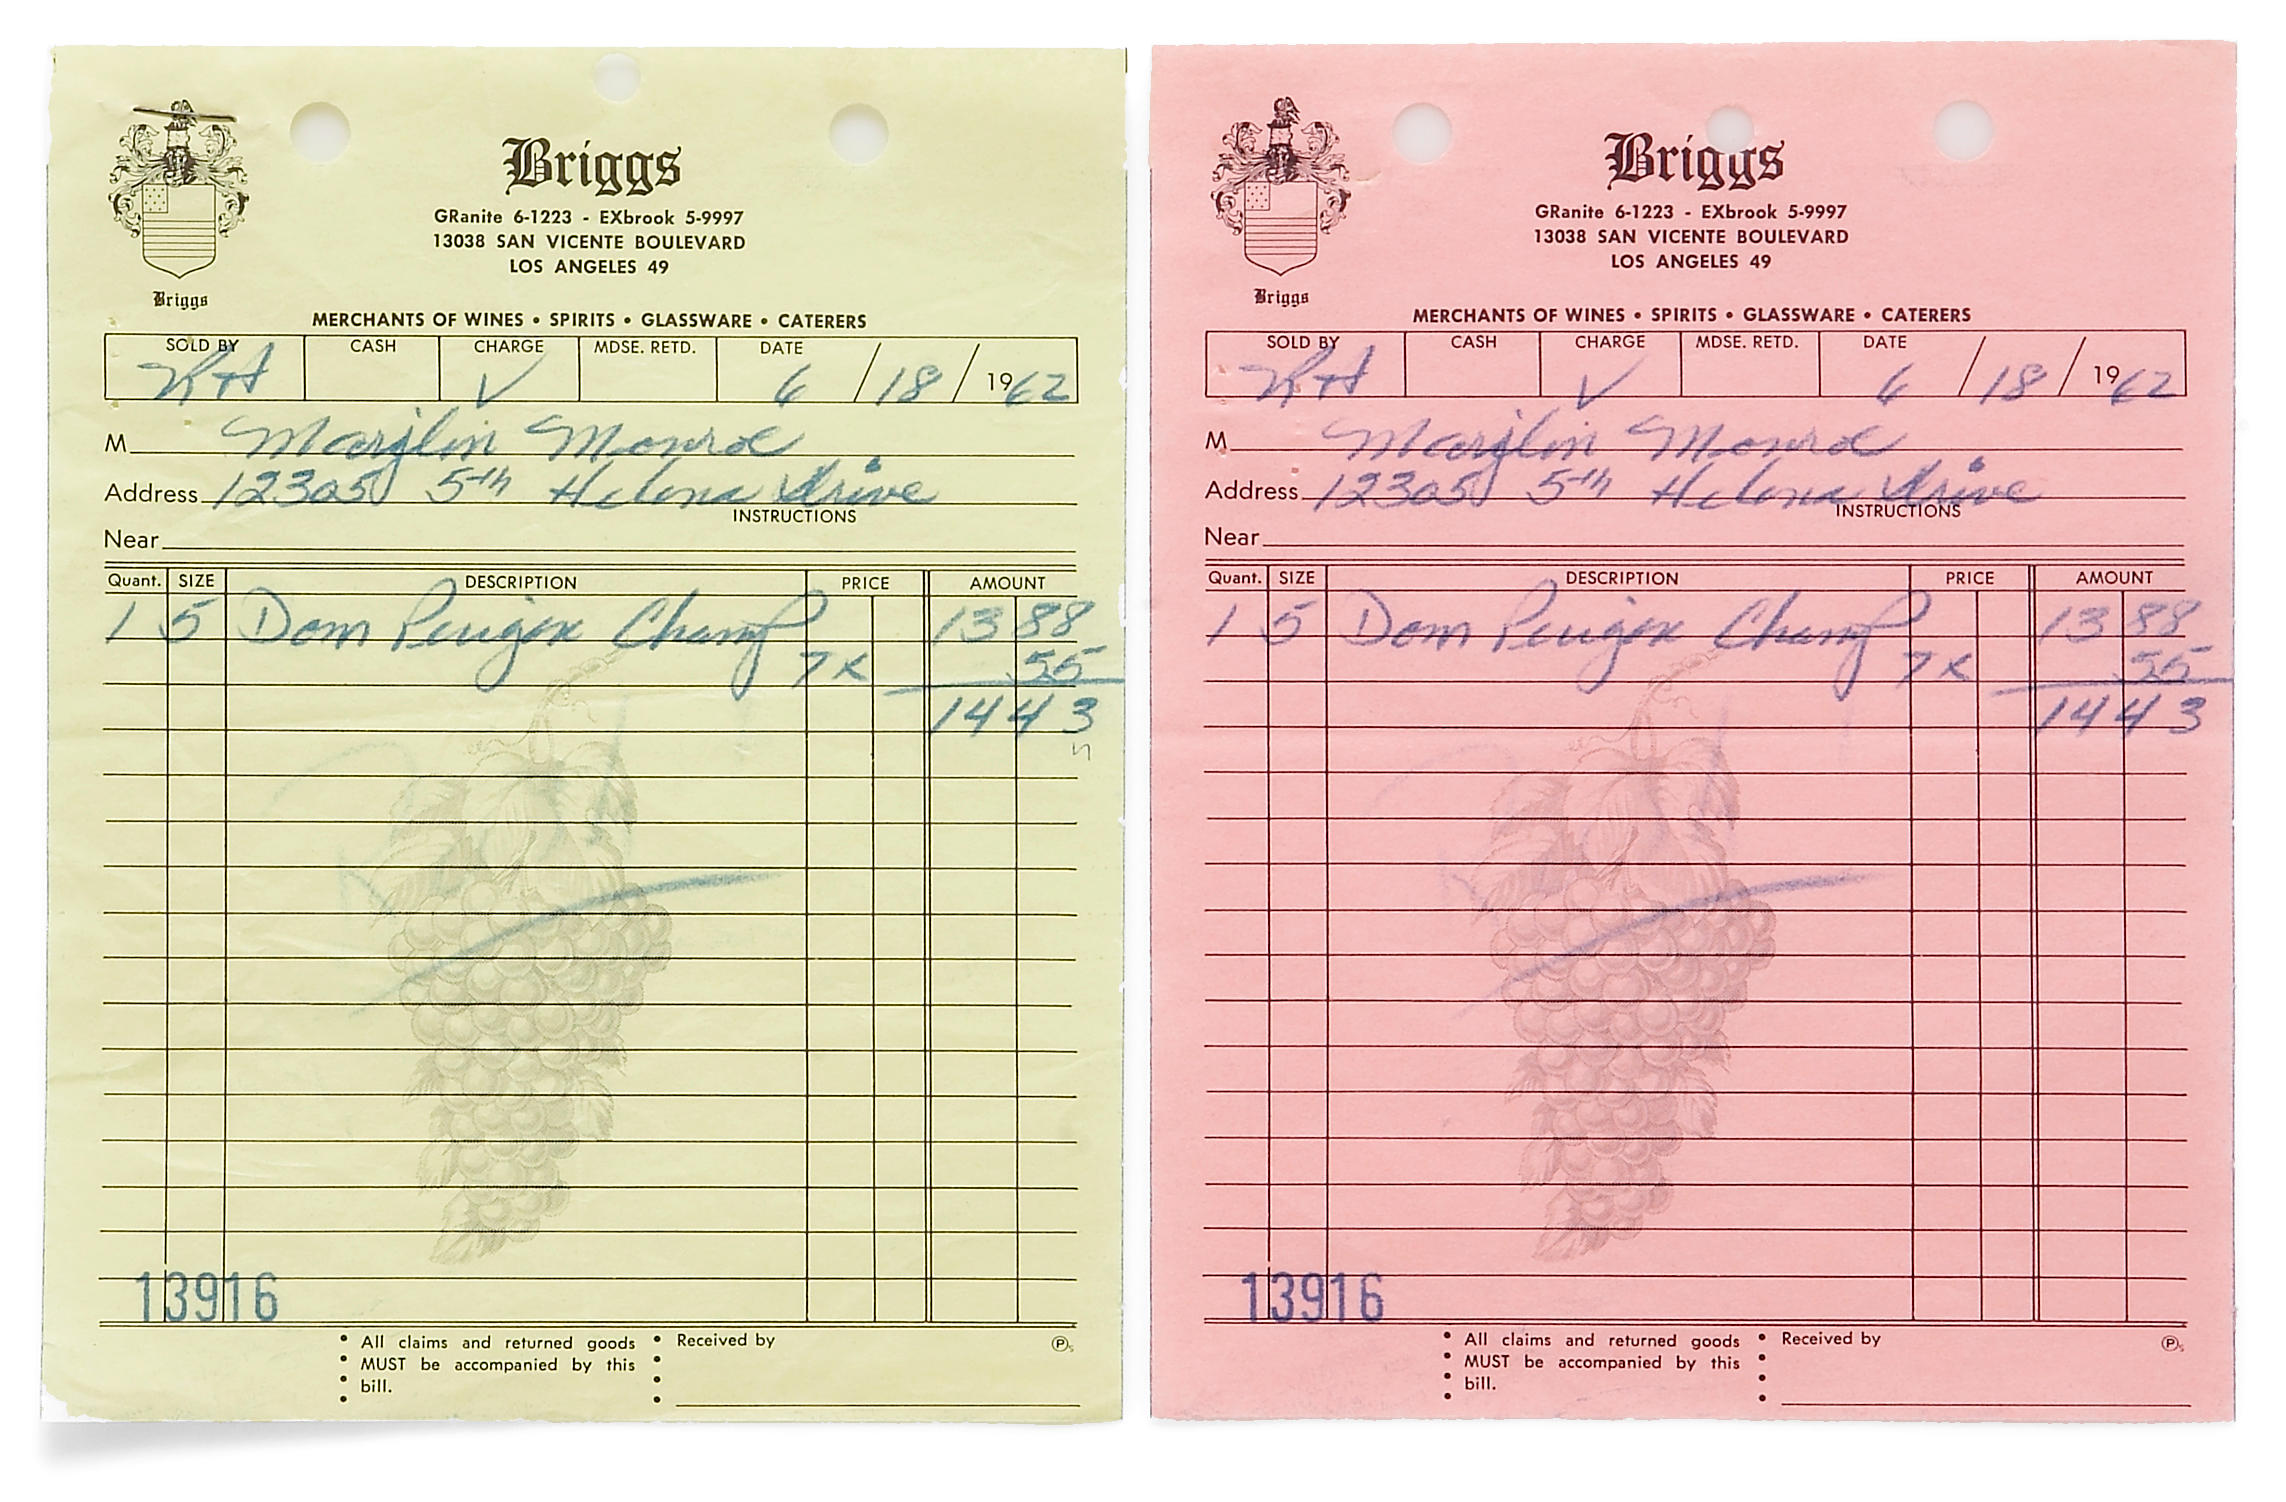 Briggs
GRanite 6-1223 - EXbrook 5-9997
13038 SAN VICENTE BOULEVARD
LOS ANGELES 49
Briggs
MERCHANTS OF WINES • SPIRITS • GLASSWARE • CATERERS
SOLD BY CASH CHARGE MDSE. RETD. DATE
RH V 6 / 18 / 1962
M Marylin Monroe
Address 12305 5th Helena Drive
INSTRUCTIONS
Near
Quant. SIZE DESCRIPTION PRICE AMOUNT
1 5 Dom Perigon Champ 13 88
TX 55
14 43
13916
All claims and returned goods
MUST be accompanied by this
bill.
Received by
Briggs
GRanite 6-1223 - EXbrook 5-9997
13038 SAN VICENTE BOULEVARD
LOS ANGELES 49
Briggs
MERCHANTS OF WINES • SPIRITS • GLASSWARE • CATERERS
SOLD BY CASH CHARGE MDSE. RETD. DATE
RH V 6 / 18 / 1962
M Marylin Monroe
Address 12305 5th Helena Drive
INSTRUCTIONS
Near
Quant. SIZE DESCRIPTION PRICE AMOUNT
1 5 Dom Perigon Champ 13 88
TX 55
14 43
13916
All claims and returned goods
MUST be accompanied by this
bill.
Received by